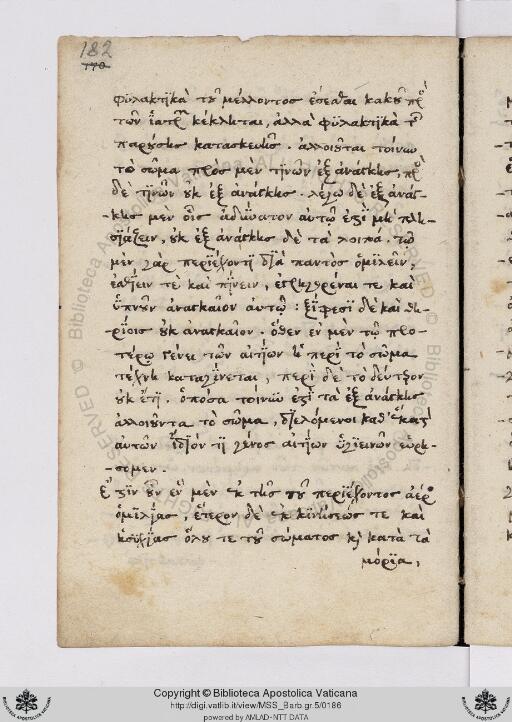 182
170
φυλακτικὰ τοῦ μέλλοντος ἔσεσθαι κακοῦ πρὸς
τῶν ἰατρῶν κέκληται, ἀλλὰ φυλακτικὰ τῆς
παρούσης κατασκευῆς. ἀλλοιοῦται τοίνυν
τὸ σῶμα πρὸς μὲν τινῶν ἐξ ἀνάγκης, πρὸς
δὲ τινῶν οὐκ ἐξ ἀνάγκης. λέγω δὲ ἐξ ἀνάγ-
-κης μὲν οἷς ἀδύνατον αὐτῷ ἐστὶ μὴ πλη-
σιάζειν, οὐκ ἐξ ἀνάγκης δὲ τὰ λοιπά. τῷ
μὲν γὰρ περιέχοντι διὰ παντὸς ὁμιλεῖν,
ἐσθίειν τὲ καὶ πίνειν, ἐγρηγορέναι τε καὶ
ὑπνοῦν ἀναγκαῖον αὐτῷ: ξίφεσι δὲ καὶ θη-
-ρίοις οὐκ ἀναγκαῖον. ὅθεν ἐν μὲν τῷ προ-
τέρω γένει τῶν αἰτίων ἡ περὶ τὸ σῶμα
τέχνη καταγίνεται, περὶ δὲ τὸ δεύτερον
οὐκ ἔτι. ὁπόσα τοίνυν ἐστὶ τὰ ἐξ ἀνάγκης
ἀλλοιοῦντα τὸ σῶμα, διελόμενοι καθ' ἕκαστον
αὐτῶν ἴδιόν τι γένος αἰτίων ὑγιεινῶν εὑρή-
-σομεν.
Ἔστιν οὖν ἓν μὲν ἐκ τῆς τοῦ περιέχοντος ἀέρος
ὁμιλίας, ἕτερον δὲ ἐκ κινήσεώς τε καὶ
ἡσυχίας ὅλου τε τοῦ σώματος καὶ κατὰ τὰ
μόρια,
Copyright © Biblioteca Apostolica Vaticana
http://digi.vatlib.it/view/MSS_Barb.gr.5/0186
powered by AMLAD-NTT DATA